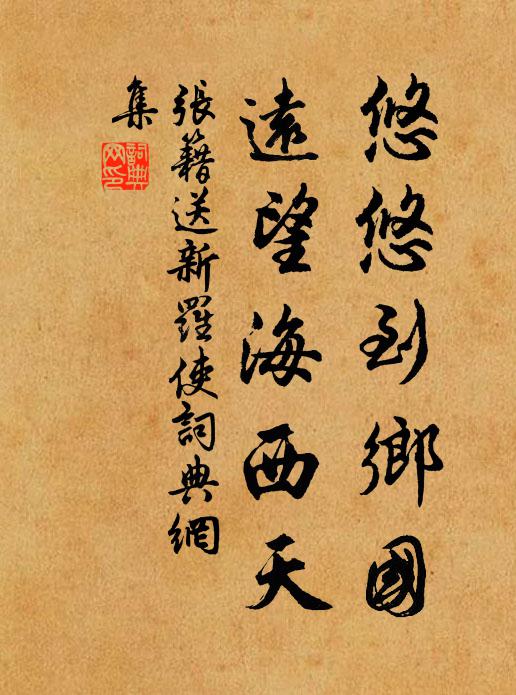 悠悠到鄉國
遠望海西天
張籍送新羅使詞典網
集
詞典網印